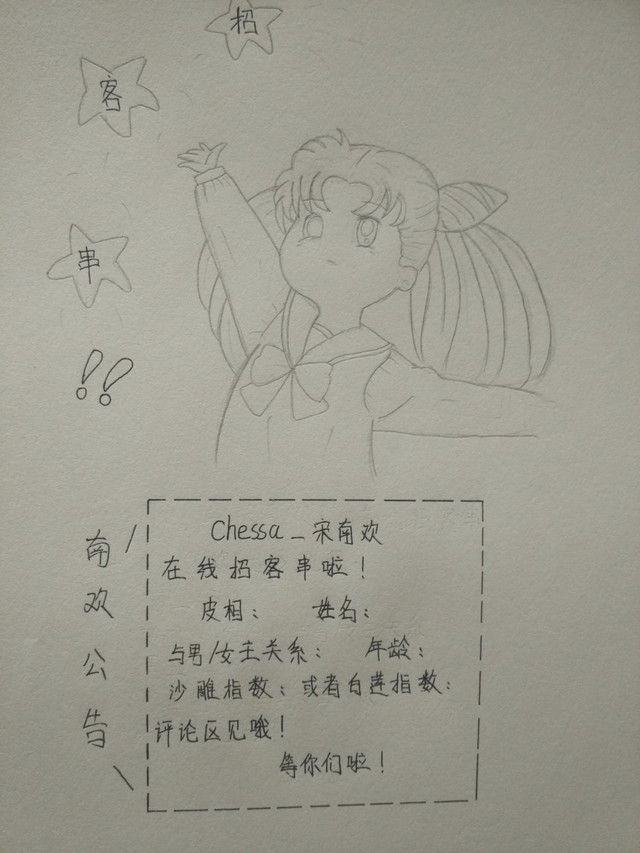 招
客
串
!!
南欢公告
Chessa_宋南欢
在线招客串啦!
皮相: 姓名:
与男/女主关系: 年龄:
沙雕指数: 或者白莲指数:
评论区见哦!
等你们啦!